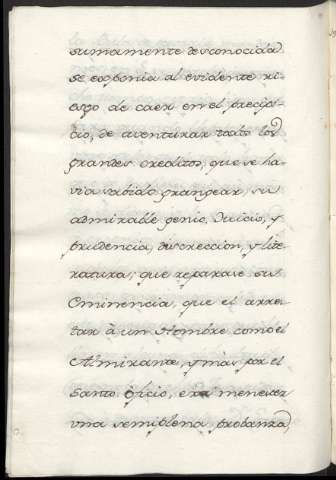 sumamente desconocida
se exponia al evidente ri=
esgo de caer en el precipi=
cio, de aventurar todos los
grandes creditos, que se ha-
via sabido grangear, su
admirable genio, Juicio, y
prudencia, discreccion, y lite-
ratura; que reparase su
Eminencia, que el arres-
tar à un Hombre como el
Almirante, y más por el
Santo Oficio, era menester
una semiplena probanza,